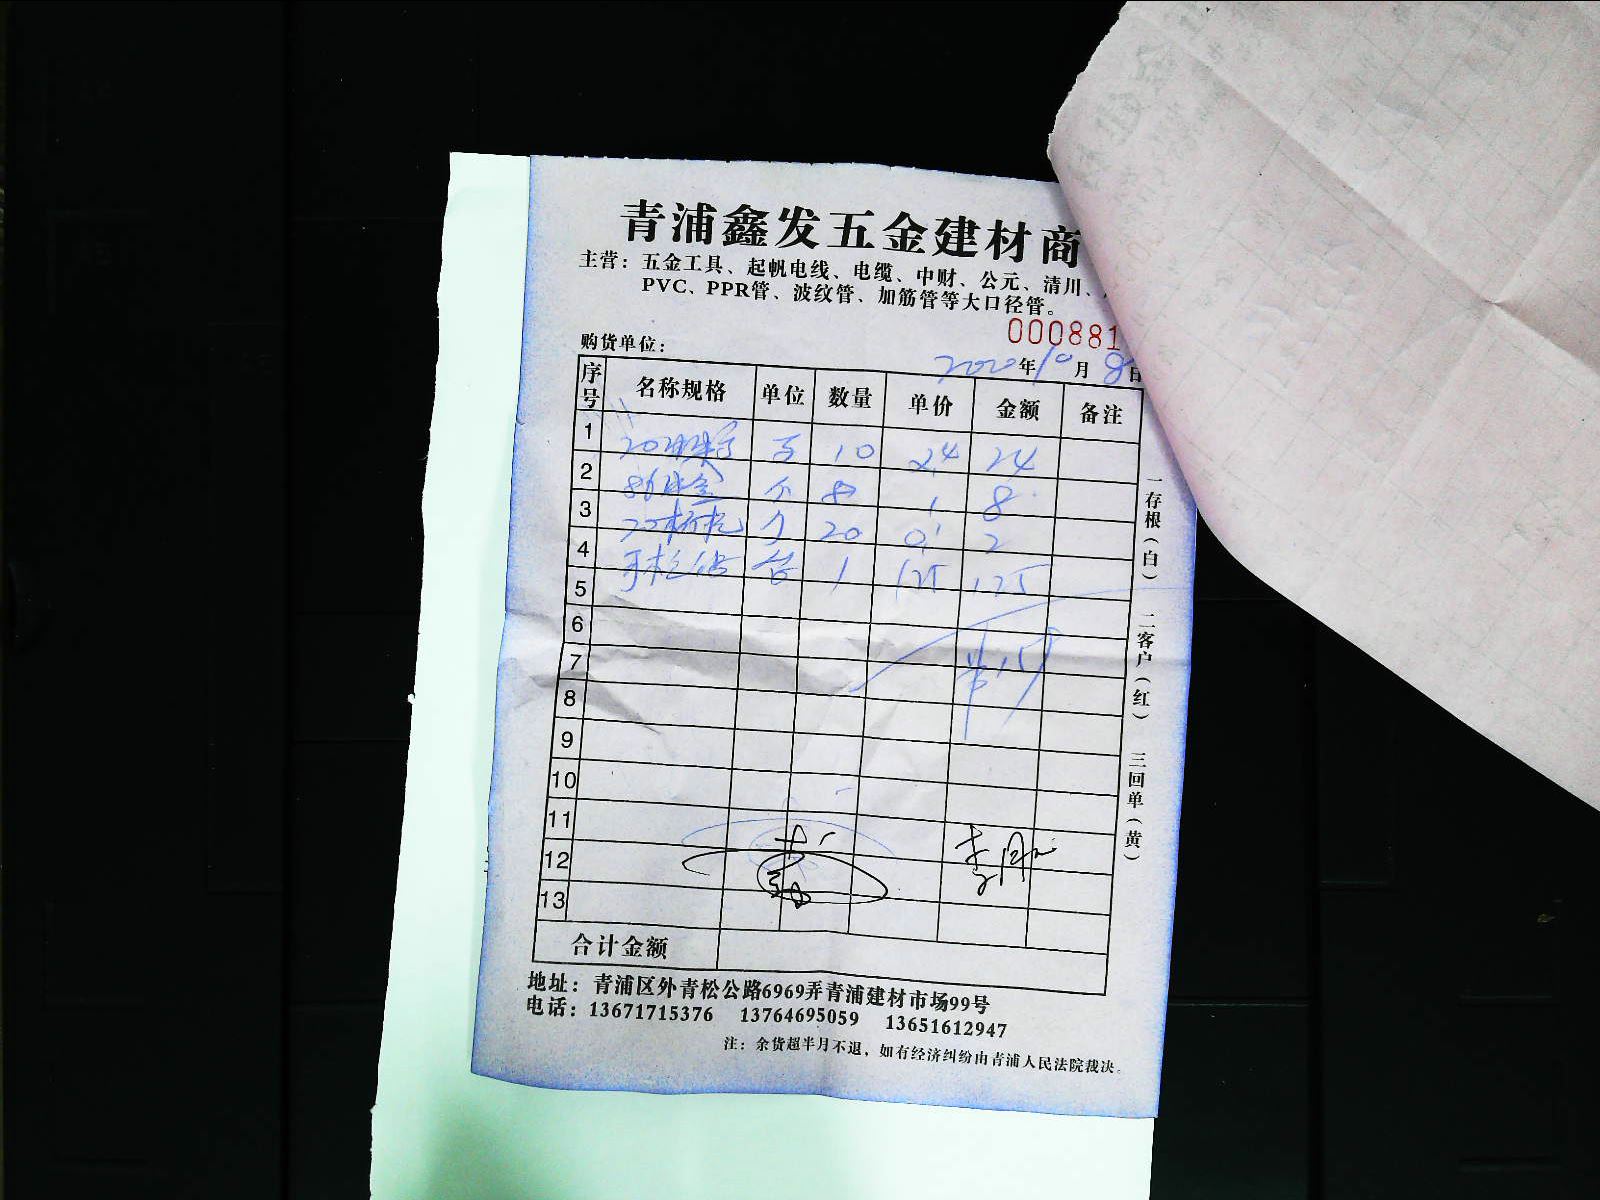 青浦鑫发五金建材商
主营：五金工具、起帆电线、电缆、中财、公元、清川、
PVC、PPR管、波纹管、加筋管等大口径管。
000881
购货单位：
2020年10月8日
序号 名称规格 单位 数量 单价 金额 备注
1 10 2.4 24
2 个 8 1 8
3 个 20 0.1 2
4 台 1 125 125
5
6
7
8
9
10
11
12
13
合计金额
一存根（白） 二客户（红） 三回单（黄）
地址：青浦区外青松公路6969弄青浦建材市场99号
电话：13671715376 13764695059 13651612947
注：余货超半月不退，如有经济纠纷由青浦人民法院裁决。